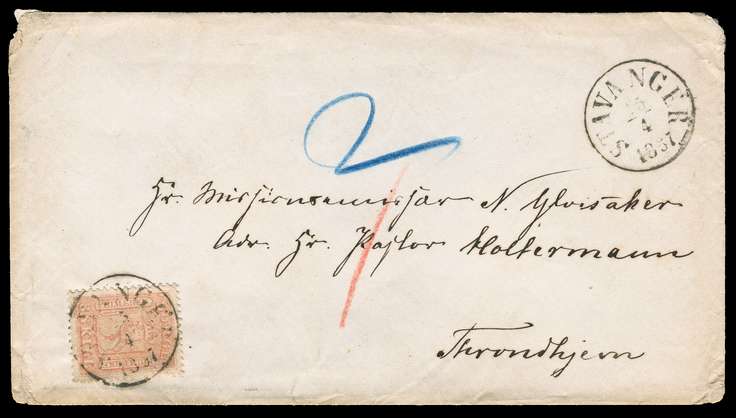 STAVANGER
4
1867
2
Hr. Missionsemissær N. Ylvisaker
Adr. Hr. Pastor Holtermann
Throndhjem